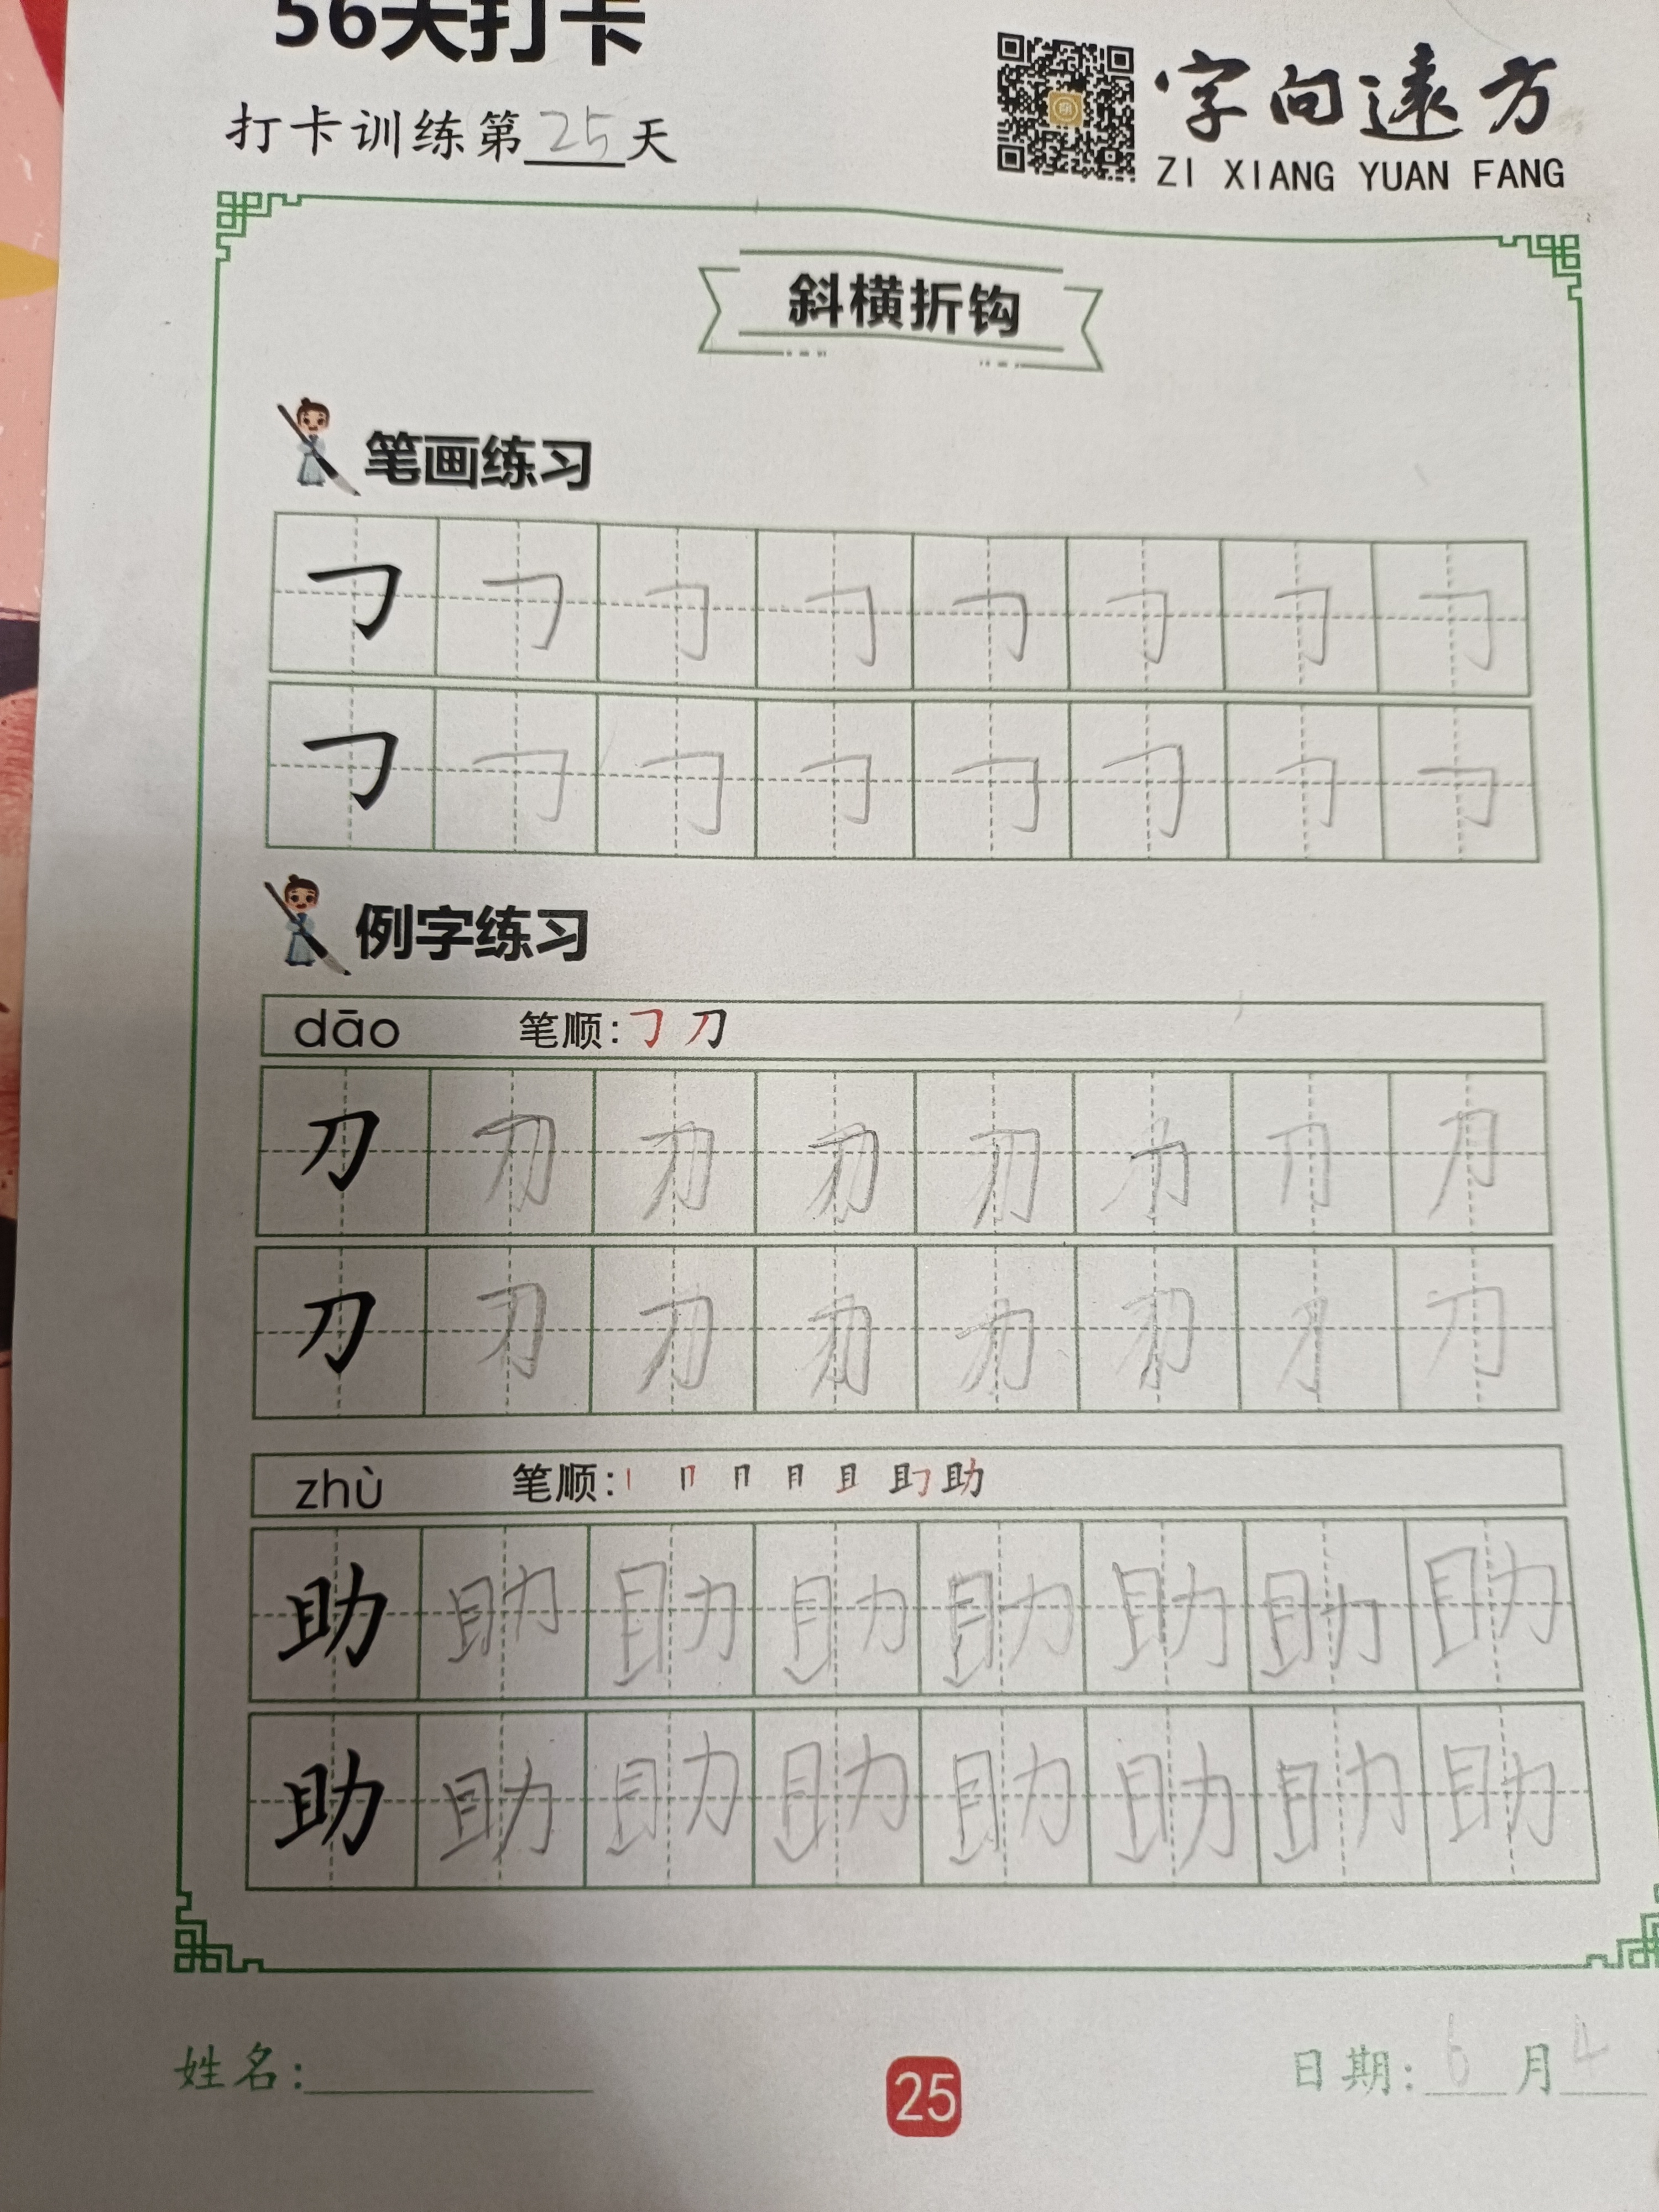 56天打卡
打卡训练第25天
字向遠方
ZI XIANG YUAN FANG
斜横折钩
笔画练习
㇆ ㇆ ㇆ ㇆ ㇆ ㇆ ㇆ ㇆
㇆ ㇆ ㇆ ㇆ ㇆ ㇆ ㇆ ㇆
例字练习
dāo 笔顺:㇆ 刀
刀 刀 刀 刀 刀 刀 刀 刀
刀 刀 刀 刀 刀 刀 刀 刀
zhù 笔顺:丨 冂 月 且 助
助 助 助 助 助 助 助 助
助 助 助 助 助 助 助 助
姓名:
25
日期:6月4